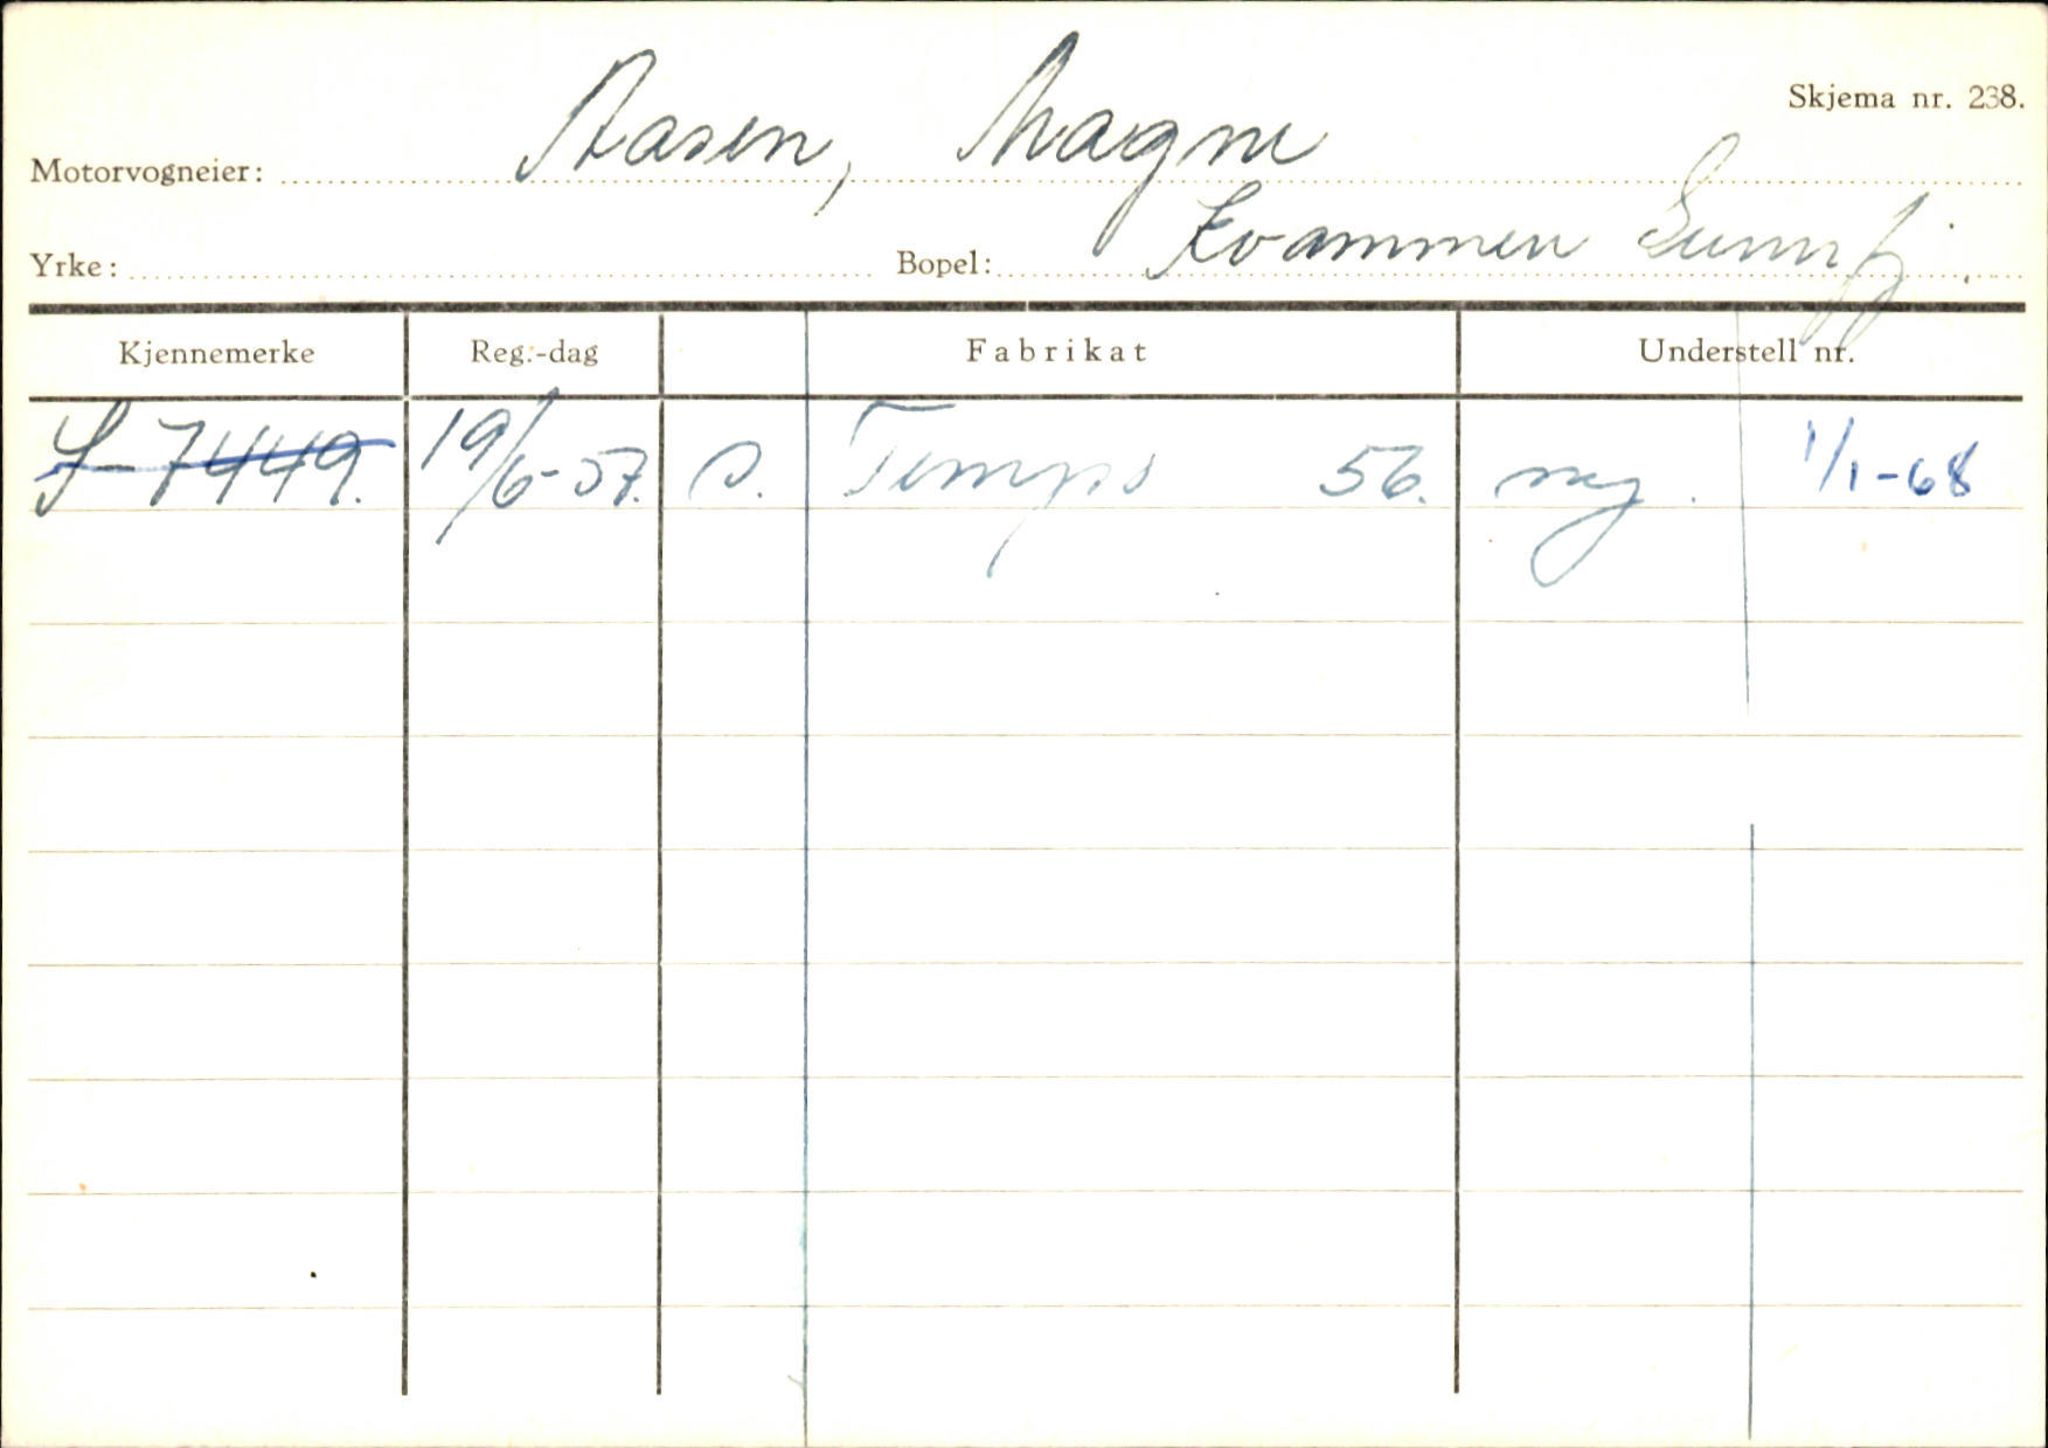 Skjema nr. 238.
Motorvogneier: Aasen, Magne
Yrke: Bopel: Kvammen Sunnfj.
Kjennemerke Reg.-dag Fabrikat Understell nr.
S-7449. 19/6-57. S. Tempo 56. 1/1-68